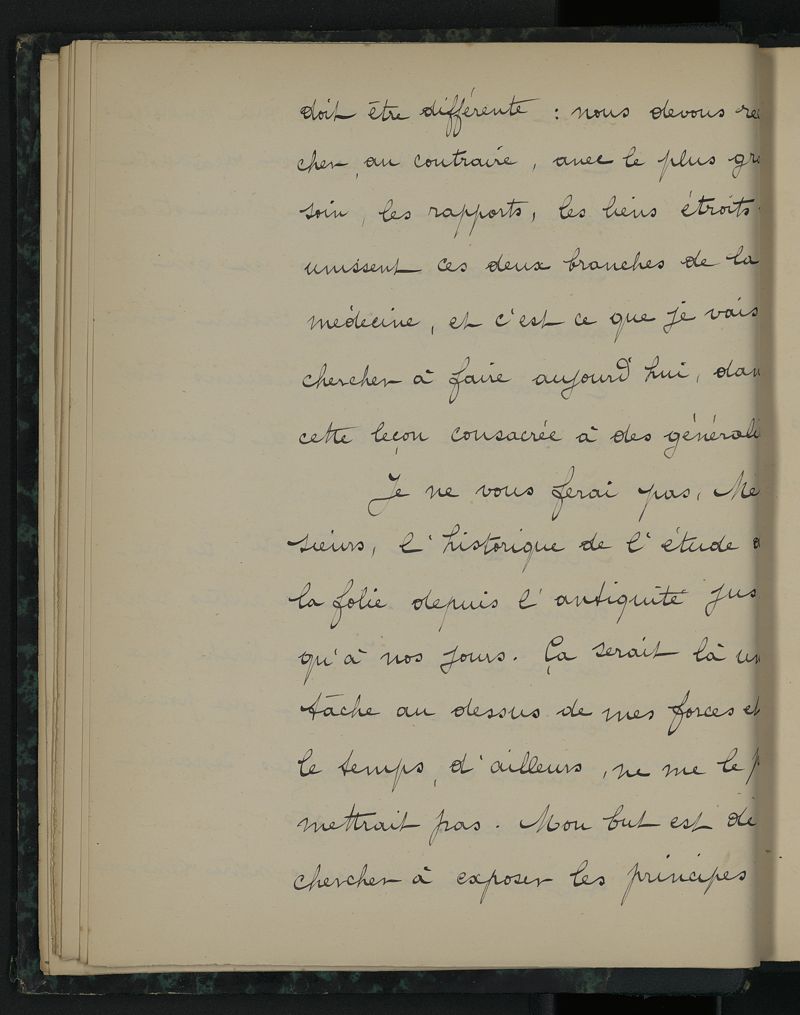 doit être différente : nous devons re
cher, au contraire, avec le plus gr
soin, les rapports, les liens étroits
unissent ces deux branches de la
médecine, et c'est ce que je vais
chercher à faire aujourd'hui, dan
cette leçon consacrée à des générali
Je ne vous ferai pas, Me
sieurs, l'historique de l'étude d
la folie depuis l'antiquité jus
qu'à nos jours. Ça serait là un
tâche au dessus de mes forces et
le temps, d'ailleurs, ne me le p
mettrait pas. Mon but est de
chercher à exposer les principes